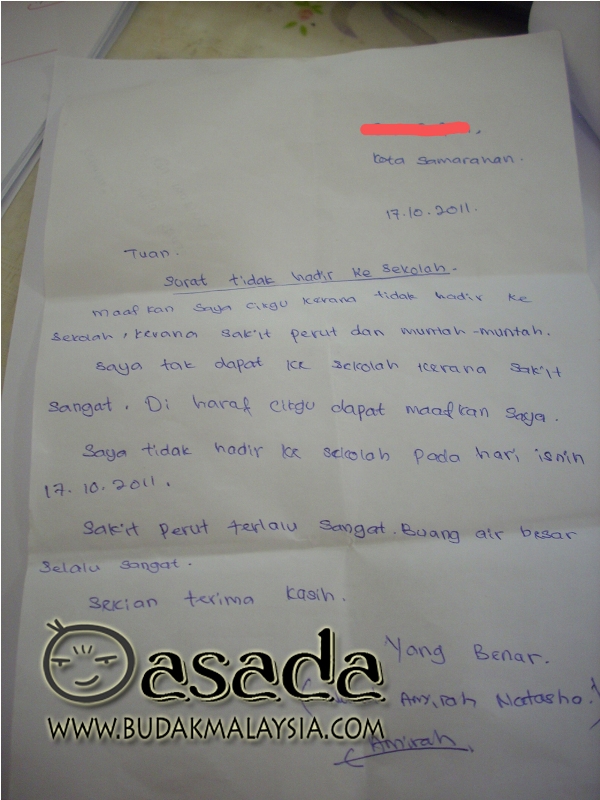 Kota Samarahan.
17.10.2011.
Tuan.
Surat tidak hadir ke sekolah.
maafkan saya cikgu kerana tidak hadir ke
sekolah, kerana sakit perut dan muntah-muntah.
saya tak dapat ke sekolah kerana sakit
sangat. Di haraf cikgu dapat maafkan saya.
Saya tidak hadir ke sekolah pada hari isnin
17.10.2011.
Sakit perut terlalu sangat. Buang air besar
selalu sangat.
Sekian terima kasih.
Yang Benar.
Amirah Natasha.)
Amirah
asada
WWW.BUDAKMALAYSIA.COM